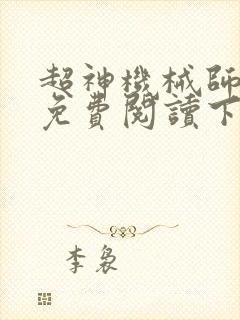 超神機械師
免費閱讀下
李裊